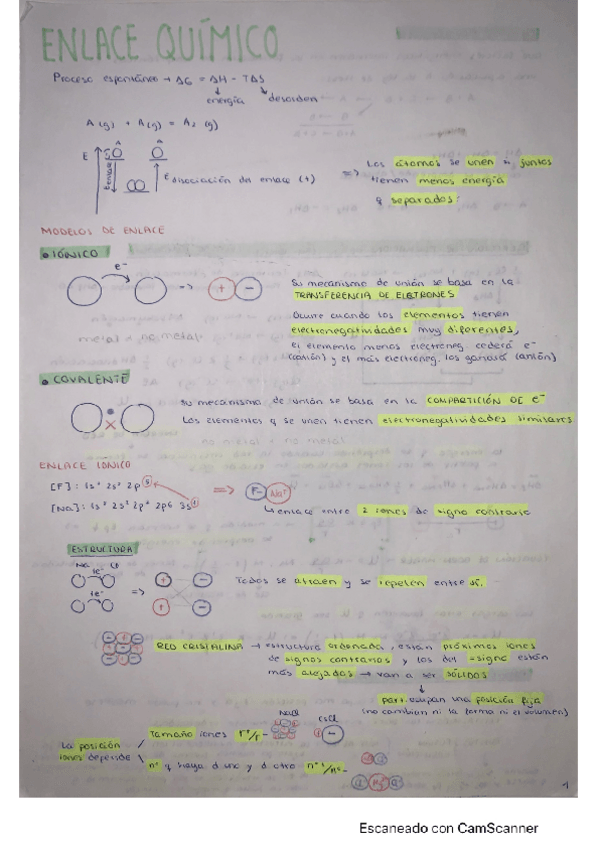 ENLACE QUÍMICO
Proceso espontáneo → ΔG = ΔH - TΔS
energía desorden
A(g) + A(g) = A₂ (g)
E
E disociación del enlace (+)
=> Los átomos se unen si juntos
tienen menos energía
q separados:
MODELOS DE ENLACE
IÓNICO
e⁻
=> + −
Su mecanismo de unión se basa en la
TRANSFERENCIA DE ELETRONES
Ocurre cuando los elementos tienen
electronegatividades muy diferentes,
metal + no metal
el elemento menos electroneg. cederá e⁻
(catión) y el más electroneg. los ganará (anión)
COVALENTE
Su mecanismo de unión se basa en la COMPARTICIÓN DE e⁻
Los elementos q se unen tienen electronegatividades similares
ENLACE IÓNICO
[F]: 1s² 2s² 2p⁵
=> F⁻ Na⁺
[Na]: 1s² 2s² 2p⁶ 3s¹
↳ enlace entre 2 iones de signo contrario
ESTRUCTURA
Na Cl
1e⁻
1e⁻
=> + − + −
Todos se atraen y se repelen entre sí.
RED CRISTALINA → estructura ordenada, están próximos iones
de signos contrarios y los del =signo están
más alejados → van a ser SÓLIDOS
part. ocupan una posición fija
(no cambian ni la forma ni el volumen)
NaCl
CsCl
Tamaño iones r⁺/r⁻
La posición
iones depende
nº q haya d uno y d otro nº⁺/nº⁻
1
Escaneado con CamScanner